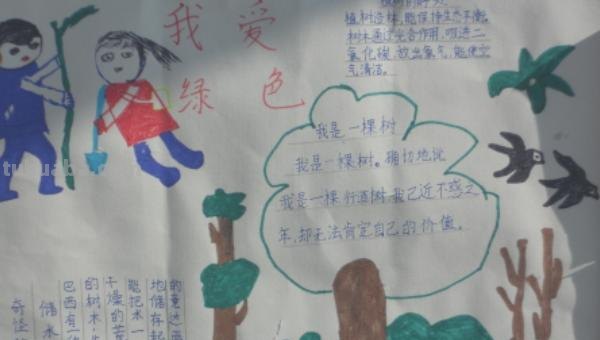 我爱
绿色
植树造林，能保持生态平衡。
树木通过光合作用，吸进二
氧化碳，放出氧气，能使空
气清洁。
我是一棵树
我是一棵树。确切地说
我是一棵行道树，我已近不惑之
年，却无法肯定自己的价值。
奇怪的
储水
巴西有
的树木，生
干燥的
能把水一
地储存起
的